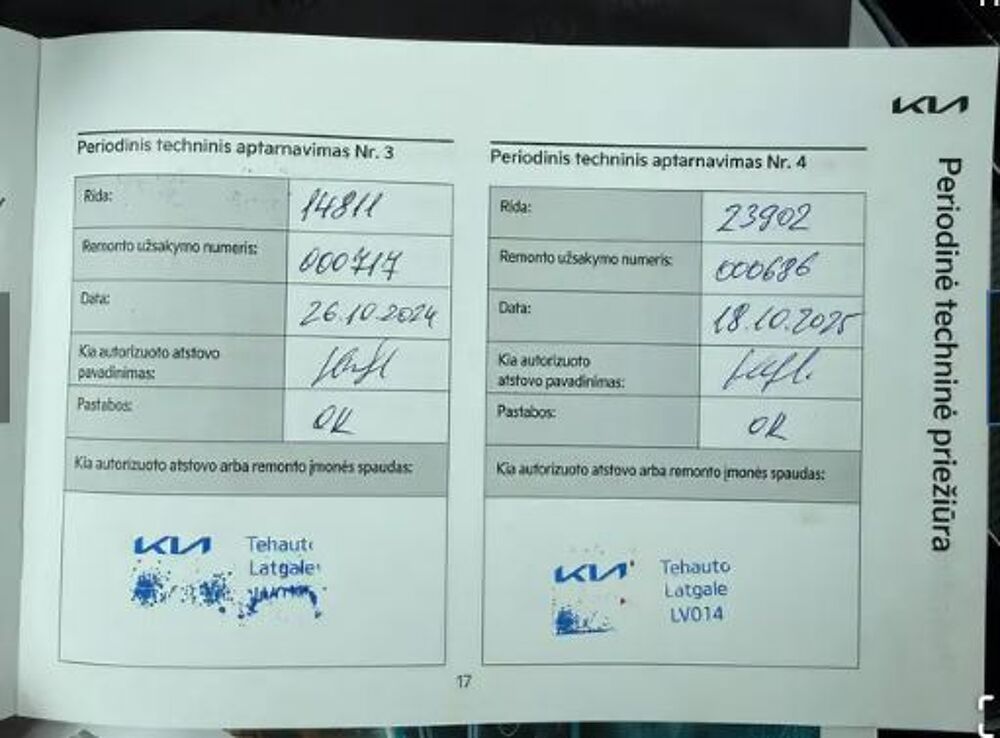 KIA
Periodinė techninė priežiūra
Periodinis techninis aptarnavimas Nr. 3
Rida: 14811
Remonto užsakymo numeris: 000717
Data: 26.10.2024
Kia autorizuoto atstovo
pavadinimas:
Pastabos: OK
Kia autorizuoto atstovo arba remonto įmonės spaudas:
KIA Tehauto
Latgale
Periodinis techninis aptarnavimas Nr. 4
Rida: 23902
Remonto užsakymo numeris: 000686
Data: 18.10.2025
Kia autorizuoto
atstovo pavadinimas:
Pastabos: OK
Kia autorizuoto atstovo arba remonto įmonės spaudas:
KIA Tehauto
Latgale
LV014
17